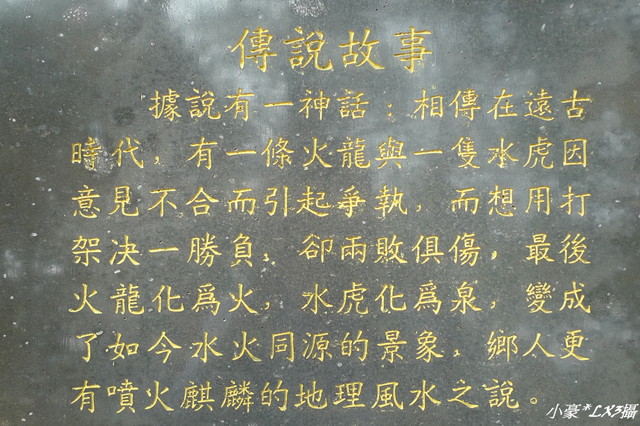 傳說故事
據說有一神話：相傳在遠古
時代，有一條火龍與一隻水虎因
意見不合而引起爭執，而想用打
架決一勝負，卻兩敗俱傷，最後
火龍化爲火，水虎化爲泉，變成
了如今水火同源的景象，鄉人更
有噴火麒麟的地理風水之說。
小豪*LX3攝